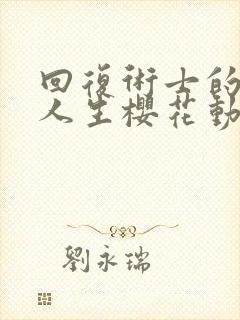 回復術士的
人生櫻花動
劉永瑞